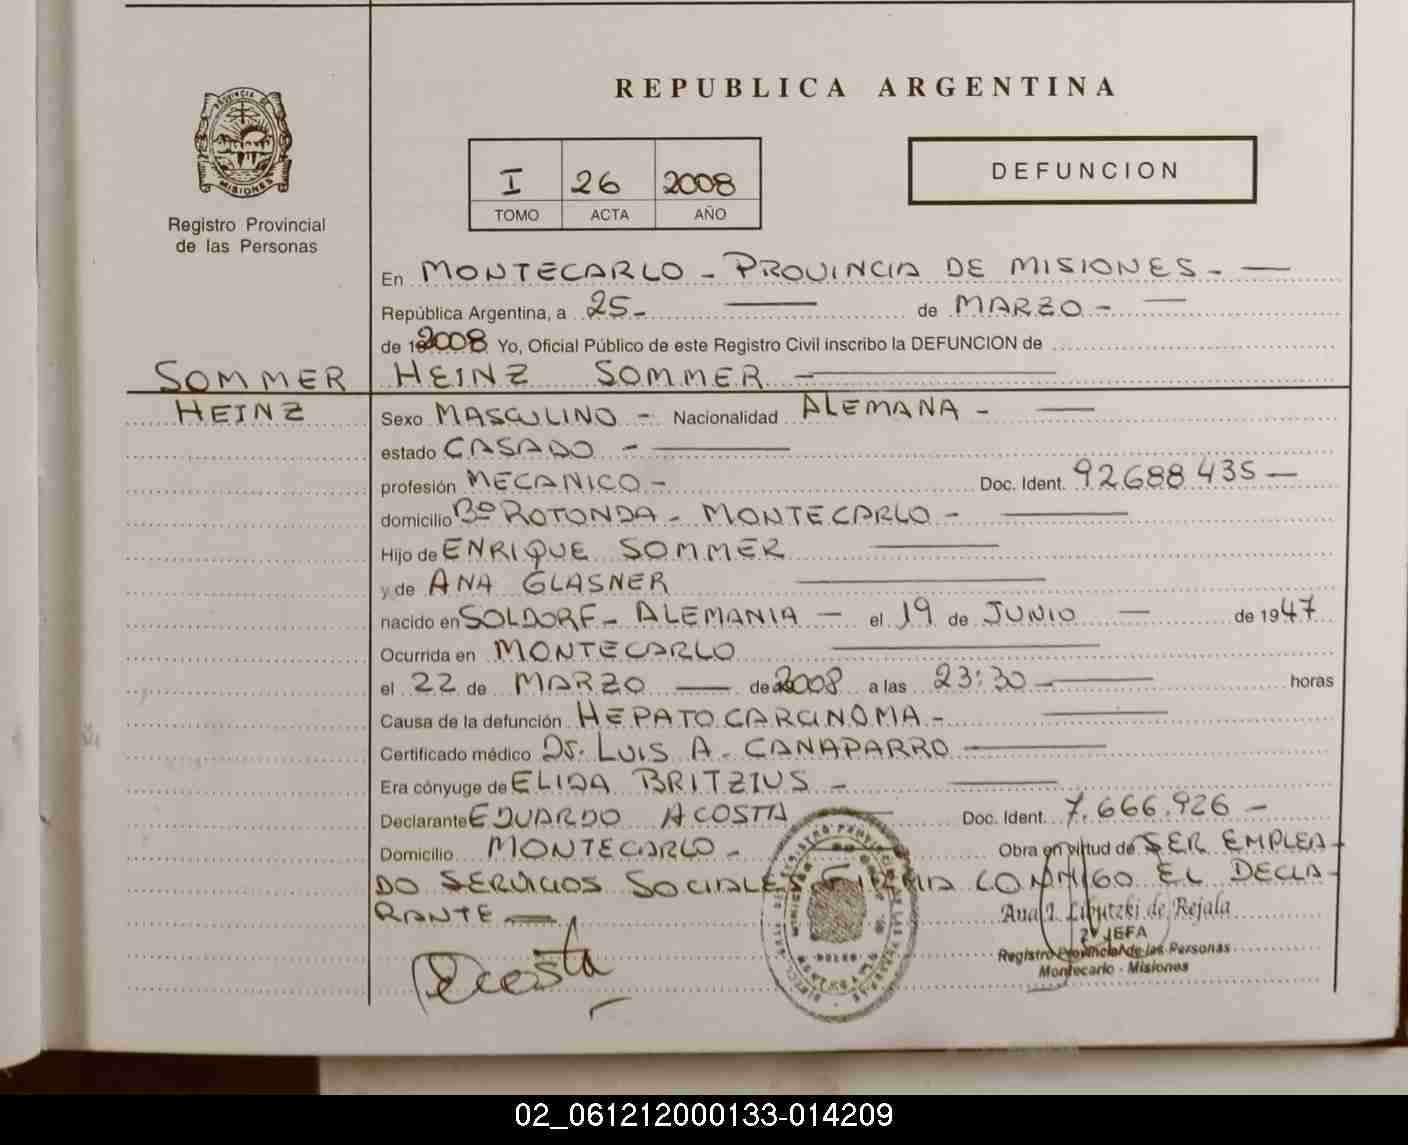 REPUBLICA ARGENTINA
PROVINCIA DE
MISIONES
Registro Provincial
de las Personas
I 26 2008
TOMO ACTA AÑO
DEFUNCION
En MONTECARLO - PROVINCIA DE MISIONES -
República Argentina, a 25 - de MARZO -
de 2008 Yo, Oficial Público de este Registro Civil inscribo la DEFUNCION de
SOMMER HEINZ SOMMER -
HEINZ Sexo MASCULINO - Nacionalidad ALEMANA -
estado CASADO -
profesión MECANICO - Doc. Ident. 92688435 -
domicilio Bº ROTONDA - MONTECARLO -
Hijo de ENRIQUE SOMMER
y de ANA GLASNER
nacido en SOLDORF - ALEMANIA - el 19 de JUNIO - de 1947
Ocurrida en MONTECARLO
el 22 de MARZO - de 2008 a las 23:30 - horas
Causa de la defunción HEPATOCARCINOMA -
Certificado médico Dr. LUIS A. CANAPARRO
Era cónyuge de ELIDA BRITZIUS -
Declarante EDUARDO ACOSTA Doc. Ident. 7.666.926 -
Domicilio MONTECARLO - Obra en virtud de SER EMPLEA-
DO SERVICIOS SOCIALES FIRMA CONMIGO EL DECLA-
RANTE -
Ana I. Libutzki de Rejala
2ª JEFA
Registro Provincial de las Personas
Montecarlo - Misiones
Acosta
02_061212000133-014209